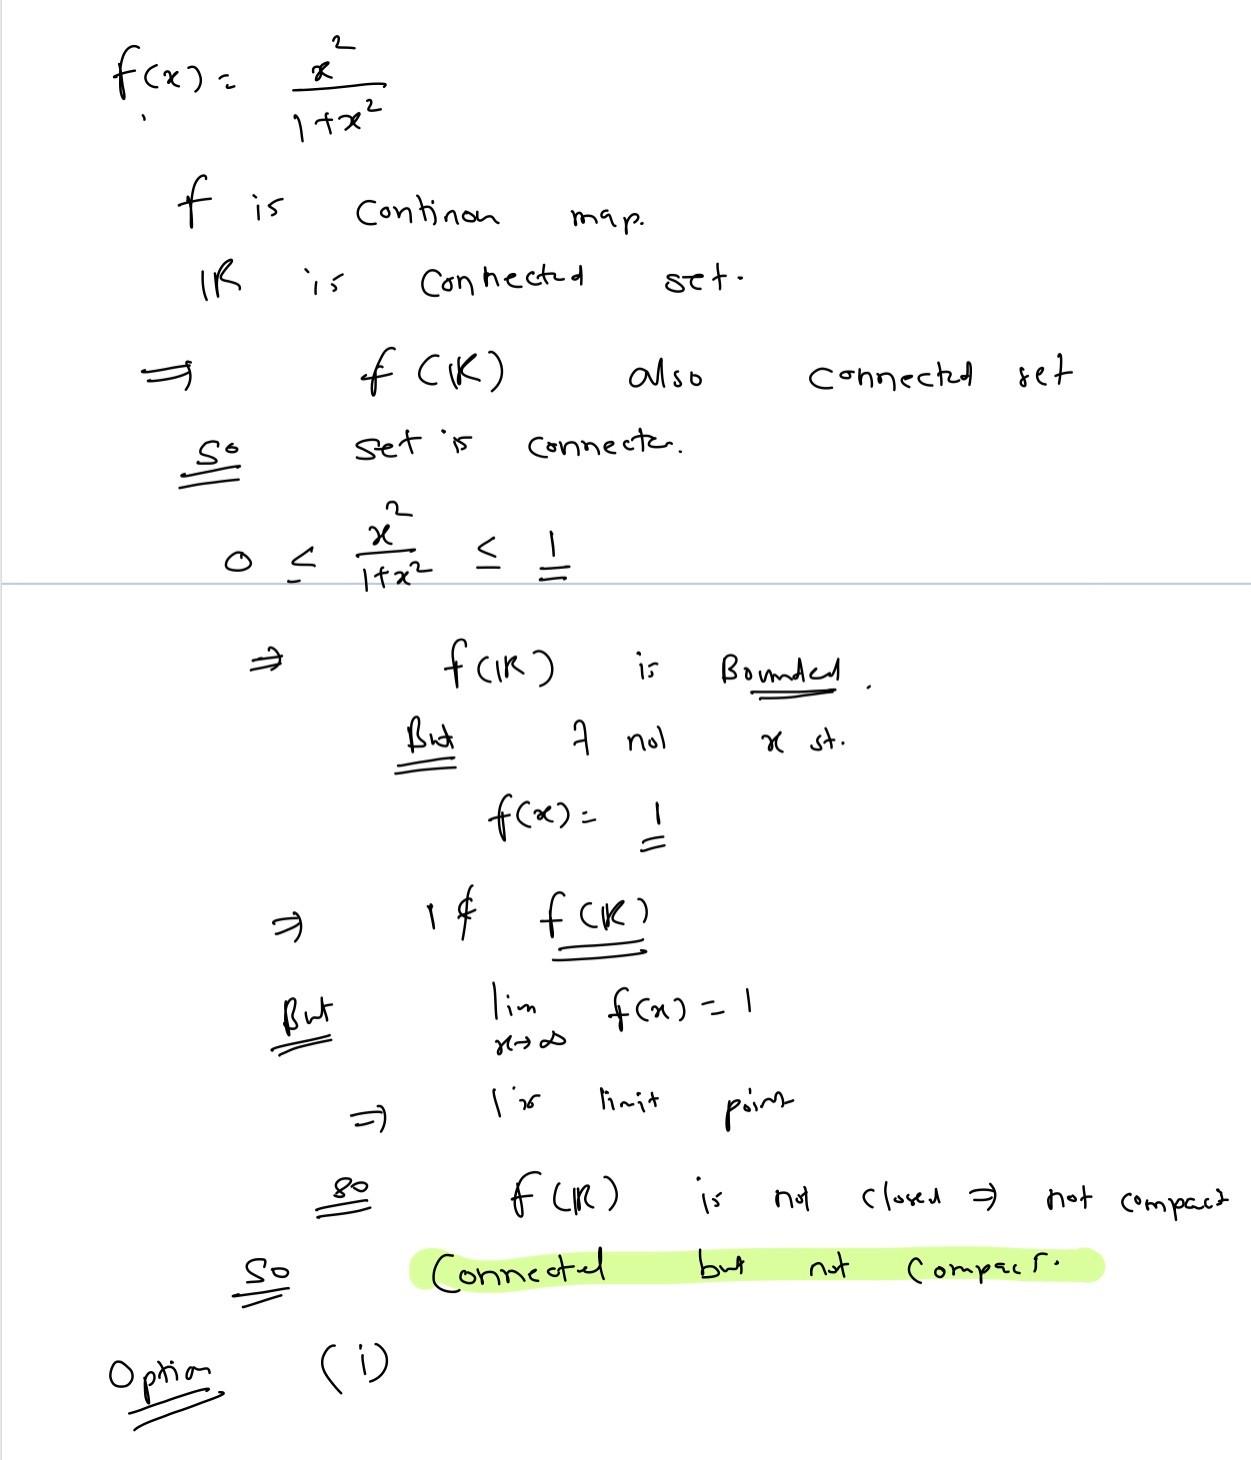 f(x) = x²/(1+x²)
f is continon map.
ℝ is connected set.
⇒ f(ℝ) also connected set
So set is connecte.
0 ≤ x²/(1+x²) ≤ 1
⇒ f(ℝ) is Bounded.
But ∃ not x st.
f(x) = 1
⇒ 1 ∉ f(ℝ)
But lim x→∞ f(x) = 1
⇒ 1 is limit point
so f(ℝ) is not closed ⇒ not compact
So Connected but not compact.
Option (i)